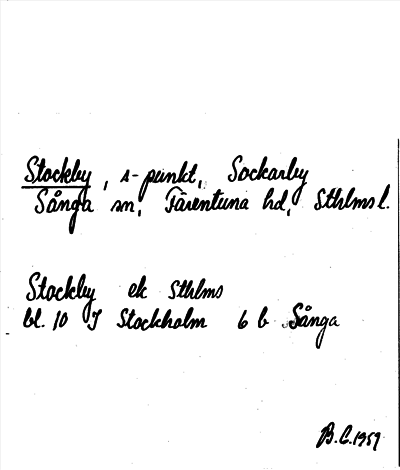 Stockby, s-punkt, Sockarby
Sånga sn, Färentuna hd, Sthlms l.
Stockby ek Sthlms
bl. 10 I Stockholm 6 b Sånga
B.C. 1959